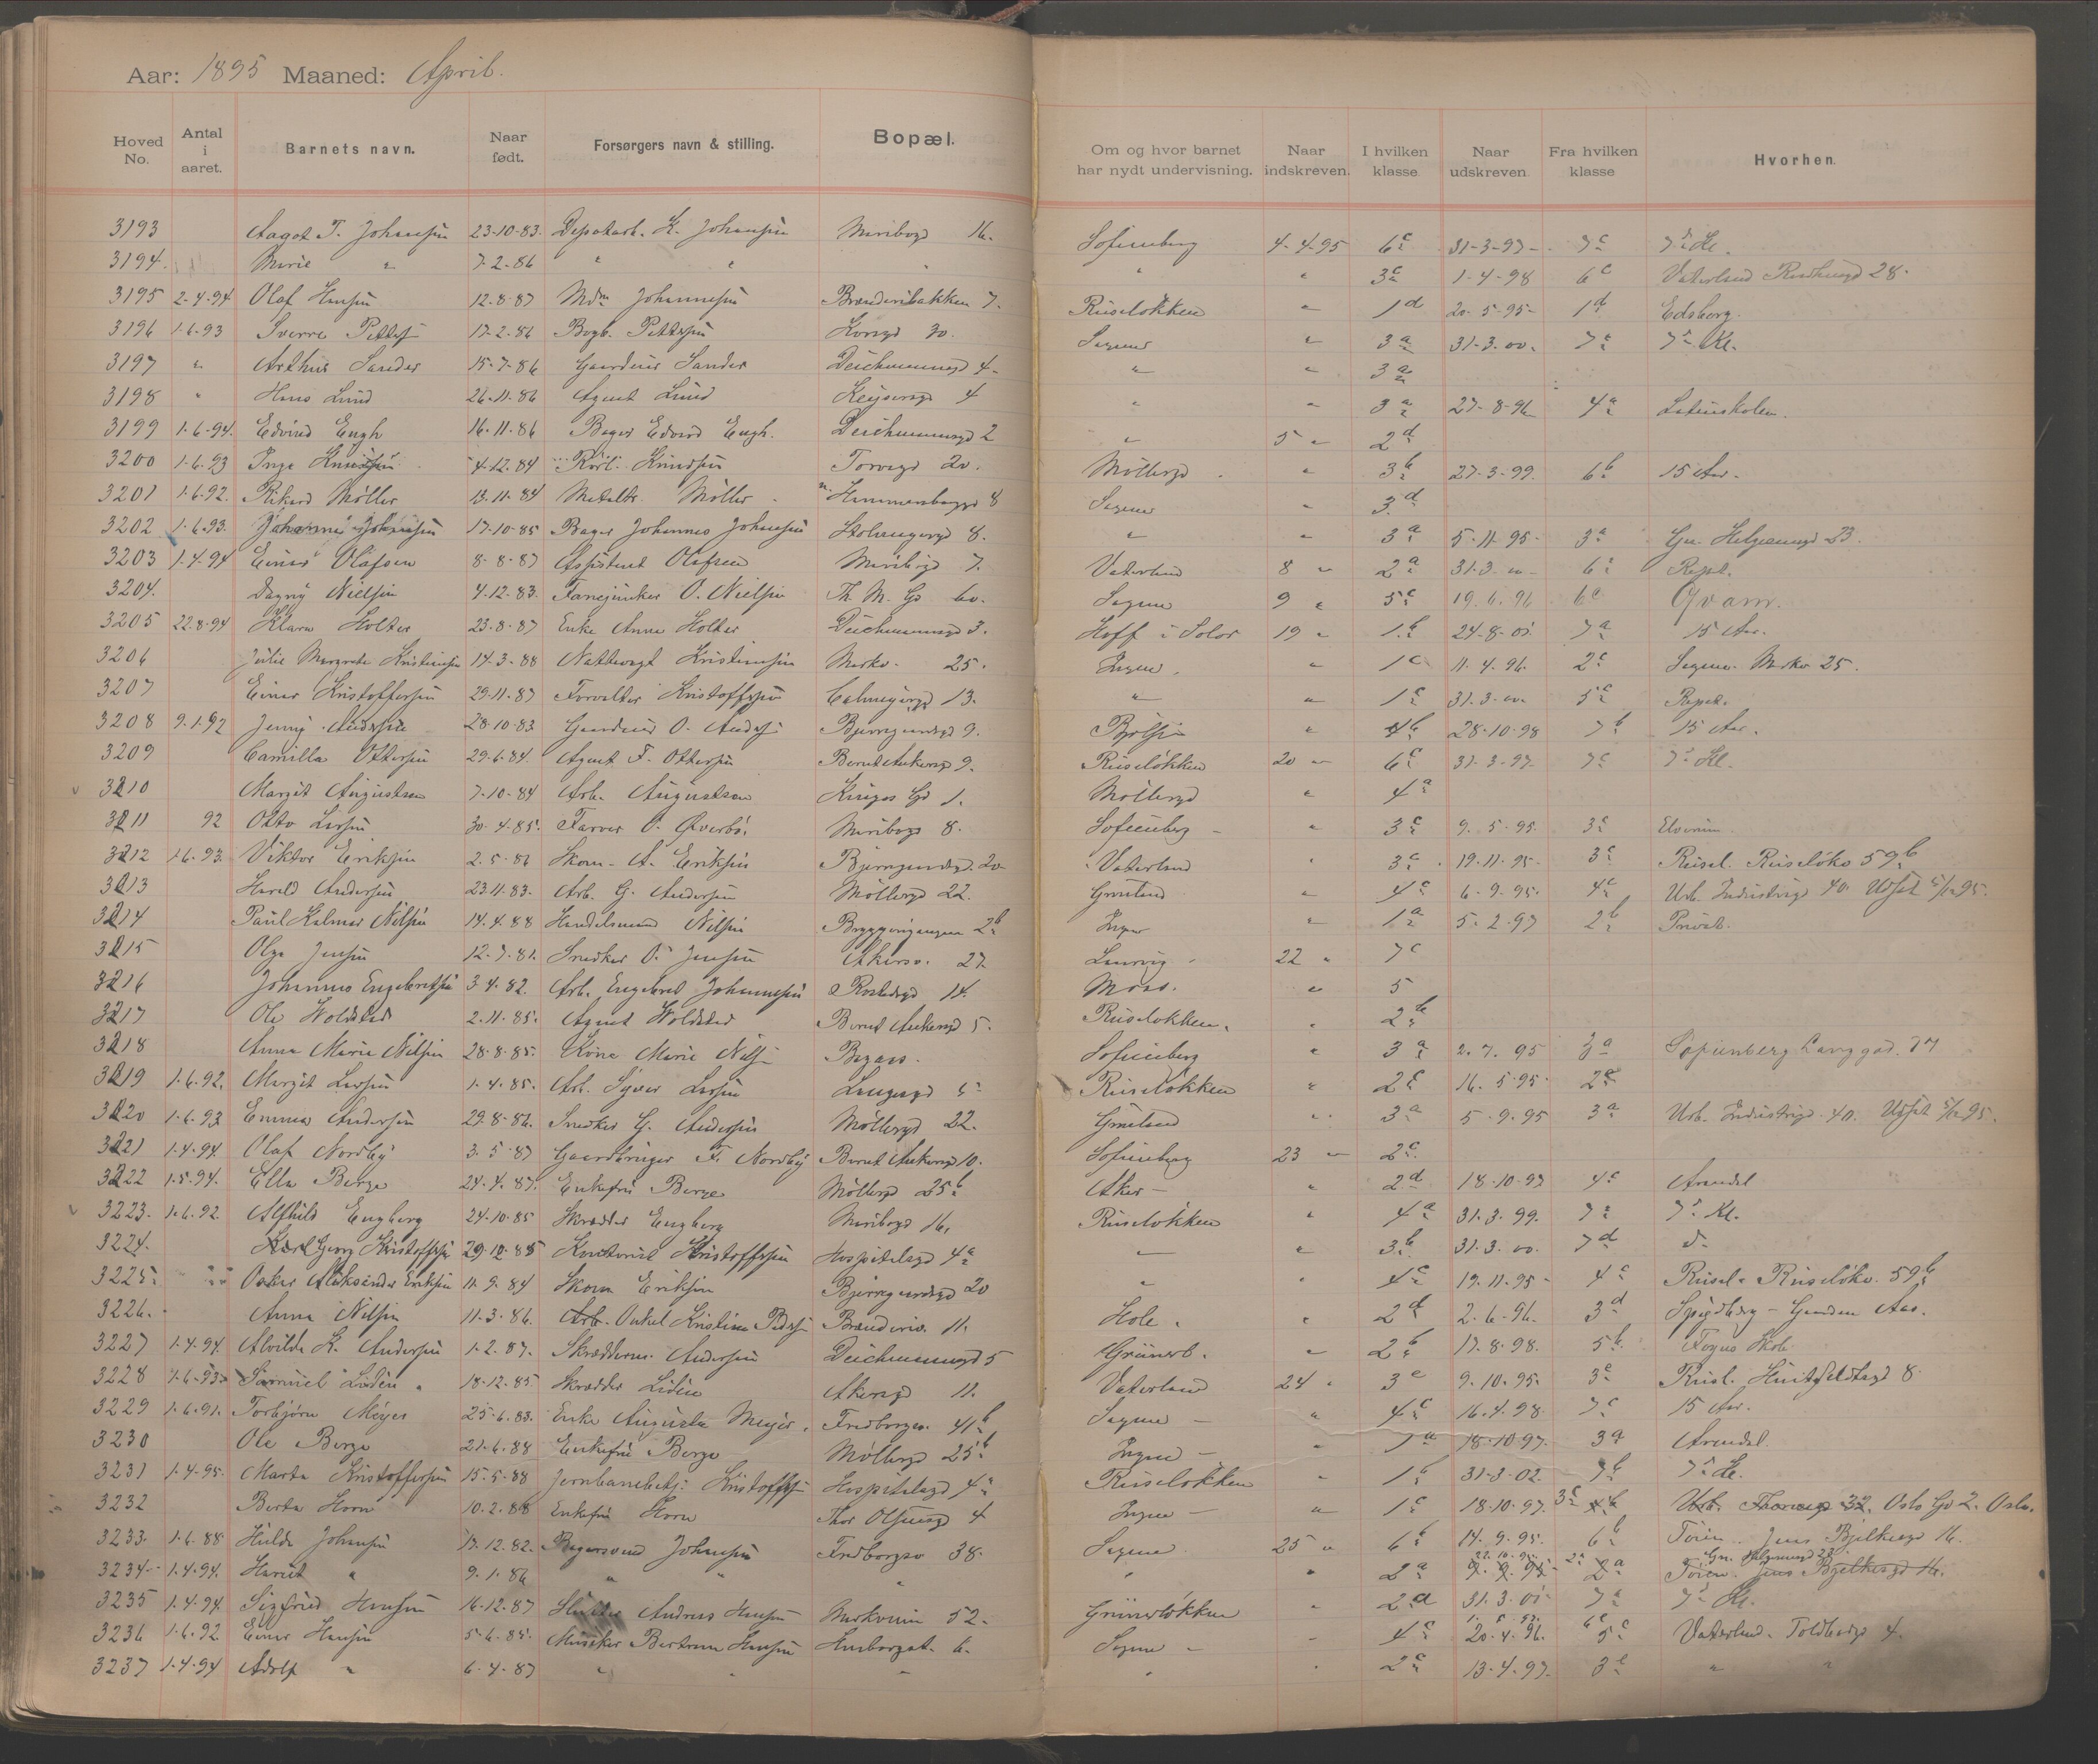 Aar: 1895 Maaned: April.
Hoved No. Antal i aaret. Barnets navn. Naar født. Forsørgers navn & stilling. Bopæl. Om og hvor barnet har nydt undervisning. Naar indskreven. I hvilken klasse Naar udskreven Fra hvilken klasse Hvorhen.
3193 Aagot T. Johansen 23-10-83. K. Johansen Maribogd 16. Sofienberg 4-4-95 6c 31-3-97- 7c 7de Kl.
3194. Marie " 7-2-86 " " " " " 3c 1-4-98 6c Vaterland 28.
3195 2-4-94 Olaf Hansen 12-8-87 Mdm Johannesen Brænderibakken 7. Ruseløkken " 1d 20-5-95- 1d Edsberg.
3196 1-6-93 Sverre Petters 17-2-86 Bogb. Pettersen Korsgd 30. Sagene " 3a 31-3-00. 7a 7de Kl.
3197 " Arthur Sander 15-7-86 Sander Deichmannsgd 4- " " 3a
3198 " Hans Lund 26-11-86 Agent Lund Keysersgd 4 " " 3a 27-8-96 4a Latinskolen.
3199 1-6-94. Edvard Engh 16-11-86 Bager Edvard Engh. Deichmannsgd 2 " 5 " 2d
3200 1-6-93 Inga Knudsen 4-12-84 Knudsen Torvgd 20. Møllergd " 3b 27-3-99. 6b 15 Aar.
3201 1-6-92. Rikard Møller 13-11-84 Møller Hammersborggd 8 Sagene " 3d
3202 1-6-93. Johannes Johansen 17-10-85 Bager Johannes Johansen Stolmagergd 8. " " 3a 5-11-95- 3a Gr. Helgesensgd 23.
3203 1-4-94 Einar Olafsen 8-8-87 Assistent Olafsen Maribogd 7. Vaterland 8 " 2a 31-3-00- 6a Rept.
3204. Dagny Nielsen 4-12-83. Fanejunker O. Nielsen Th. M. Gd 60. Sagene 9 " 5c 19-6-96 6c Qvam.
3205 22-8-94 Klara Holter 23-8-87 Enke Anna Holter Deichmannsgd 3. Hoff i Solør 19 " 1b 24-8-01. 7a 15 Aar.
3206 Julie Margrete Kristiansen 14-3-88 Nattevagt Kristiansen Markv. 25. Ingen. " 1c 11-4-96. 2c Sagene. Markv 25.
3207 Einar Kristoffersen 29-11-87 Forvalter Kristoffersen Calmeyersgd 13. " " 1c 31-3-00. 5c Rept.
3208 9-1-92 Jenny Andersen 28-10-83 O. Anders Bjerregaardsgd 9. " 4b 28-10-98 7b 15 Aar.
3209 Camilla Ottersen 29-6-84. Agent F. Ottersen Bernt Ankersgd 9. Ruseløkken 20 " 6c 31-3-97. 7c 7de Kl.
3210 Margit Augustsen 7-10-84 Arb. Augustsen Kruges Gd 1. Møllergd " 4a
3211 92 Otto Larsen 30-4-85. Farver O. Øverbø. Maribogd 8. Sofienberg - " 3c 9-5-95. 3c Elverum.
3212 1-6-93. Viktor Eriksen 2-5-86 Skom. A. Eriksen Bjerregaardsgd. 20 Vaterland " 3c 19-11-95- 3c Rusel. Ruseløkv 59b
3213 Harald Andersen 23-11-83. Arb. G. Andersen Møllergd 22. Grønland " 4c 6-9-95. 4c Urb. Industrigd 40.
3214 Paul Hilmar Nilsen 14-4-88 Handelsmand Nilsen 2b Ingen " 1a 5-2-97 2b Privat.
3215 Olga Jensen 12-7-81. Snedker O. Jensen Akersv. 27. Laurvig - 22 " 7c
3216 Johannes Engebretsen 3-4-82. Arb. Engebret Johannesen Rostedsgd 14. Moss. " 5
3217 Ole Woldstad 2-11-85. Agent Woldstad Bernt Ankersgd 5. Ruseløkken. " 2b
3218 Anna Marie Nilsen 28-8-85. Kona Marie Nils Sofienberg " 3a 2-7-95 3a Sofienberg Langgad. 77
3219 1-6-92. Margit Larsen 1-4-85. Arb. Syver Larsen Langesgd 5 Ruseløkken " 2c 16-5-95. 2c
3220 1-6-93 Emma Andersen 29-8-86. Snedker G. Andersen Møllergd 22. Grønland " 3a 5-9-95 3a Urb. Industrigd. 40.
3221 1-4-94 Olaf Nordby 3-5-87 Gaardbruger F. Nordby Bernt Ankersgd 10. Sofienberg 23 " 2c
3222 1-5-94. Ella Berge 24-4-87. Enkefru Berge Møllergd 25b Aker - " 2d 18-10-97 4c Arendal
3223. 1-6-92. Alfhild Engberg 24-10-85 Skrædder Engberg Maribogd 16. Ruseløkken " 4a 31-3-99. 7a 7de Kl.
3224. Karl Georg Kristoffersen 29-12-85 Kontorist Kristoffersen Hospitalsgd 4a " " 3b 31-3-00. 7d do
3225. Oskar Aleksander Eriksen 11-9-84 Skom Eriksen Bjerregaardsgd 20 " " 4c 19-11-95- 4c Rusel. Ruseløkv. 59b
3226. Anna Nilsen 11-3-86. Arb. Onkel Kristian Peders Brænderiv. 11. Hole. " 2d 2-6-96. 3d Spydberg - Gaarden Aas.
3227 1-4-94. Alvilda K. Andersen 1-2-87. Andersen Deichmannsgd 5 Grünerl. " 2b 17-8-98. 5b Foyns Skole
3228 1-6-93 Samuel Lidén 18-12-85. Skrædder Lidén Akersgd 11. Vaterland 24 " 3c 9-10-95. 3c Rusl. Huitfeldtsgd 8.
3229 1-6-91. Torbjørn Meyer 25-6-83. Enke Augusta Meyer. Fredborgv. 41b Sagene - " 4c 16-4-98 7c 15 Aar.
3230 Ole Berge 21-6-88 Enkefru Berge Møllergd 25b Ingen - " 1a 18-10-97. 3a Arendal.
3231 1-4-95. Marta Kristoffersen 15-5-88 Jernbanebetj. Kristoffers Hospitalsgd 4a Ruseløkken " 1b 31-3-02. 7b 7de Kl.
3232 Berta Horn 10-2-88 Enkefru Horn Thor Olsensgd 4 Ingen - " 1c 18-10-97. 3c Oslo Gd 2. Oslo.
3233. 1-6-88 Hulda Johansen 17-12-82. Bagersvend Johansen Fredborgsv 38. Sagene 25 " 6b 14-9-95. 6b Tøien. Jens Bjelkesgd 16.
3234 1-4-94. Harriet " 9-1-86 " " " " " 2a 2a Tøien. Jens Bjelkesgd 16.
3235 1-4-94 Sigfried Hansen 16-12-87 Andreas Hansen Markveien 52. Grünerløkken " 2d 31-3-01- 7a 7de Kl.
3236 1-6-92. Einar Hansen 5-6-85. Musiker Bertram Hansen 6. Sagene - " 4c 20-4-96. 5c Vaterland. Toldbodgd 4.
3237 1-4-94 Adolf " 6-4-87 " " " " " 2c 13-4-97. 3c " "